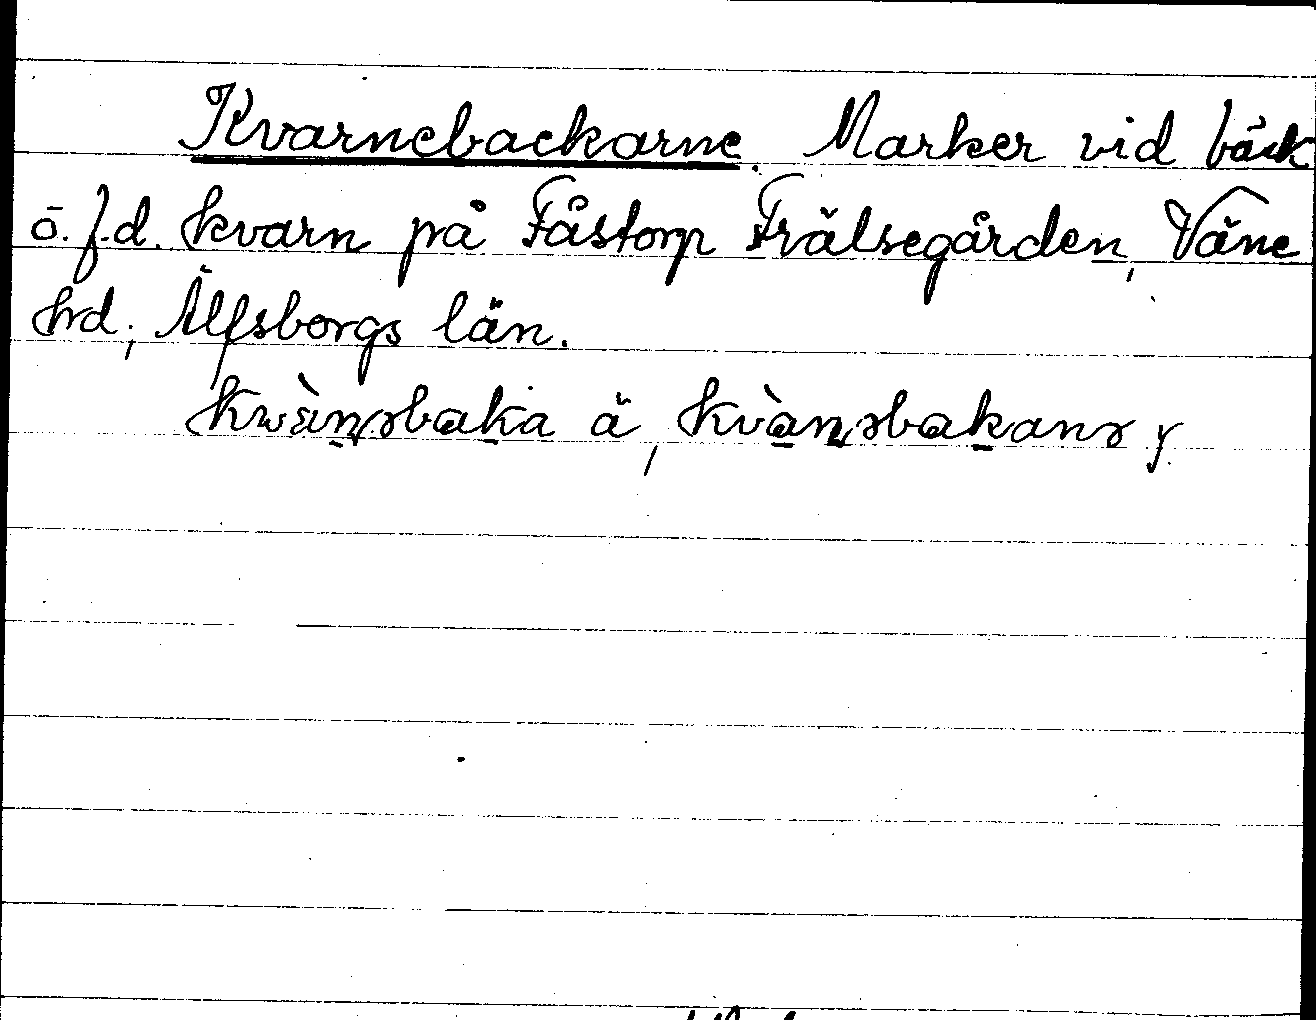 Kvarnebackarne. Marker vid bäck
o. f.d. kvarn på Fåstorp Frälsegården, Väne
hrd, Älfsborgs län.
kwànəbaka ä, kvànəbakanə y.